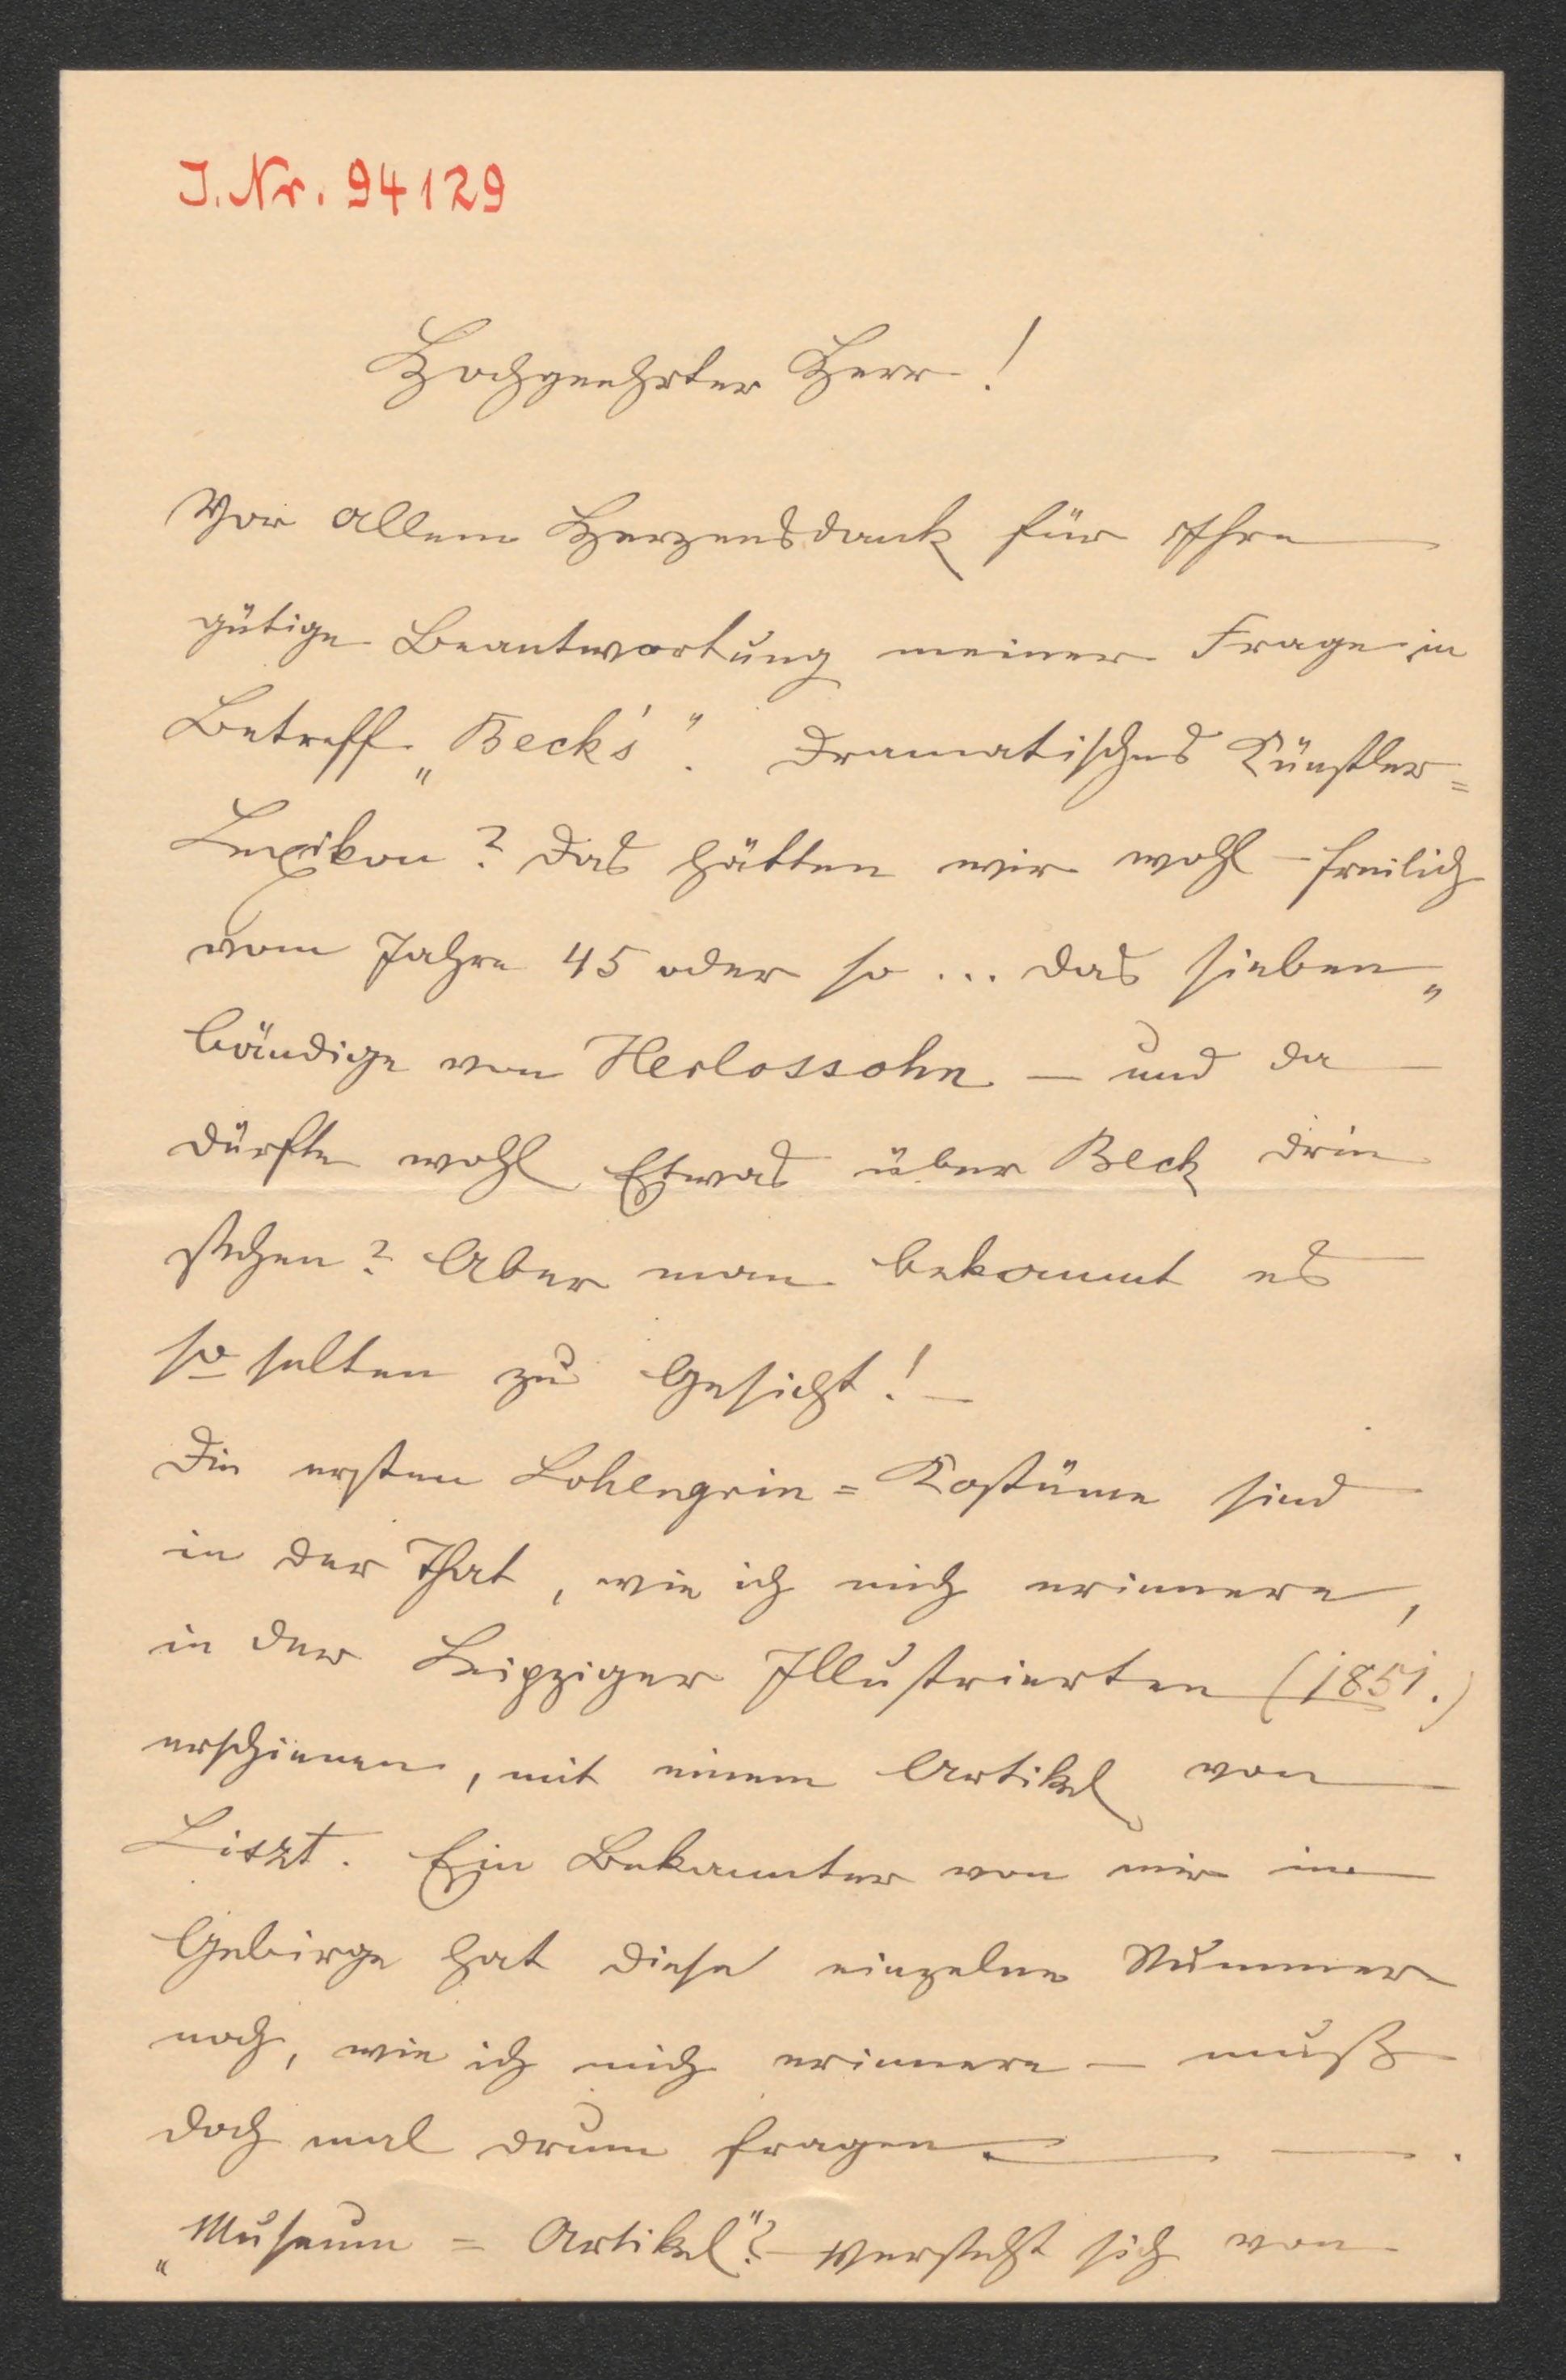 J. Nr. 94129
Hochgeehrter Herr!
Vor Allem Herzensdank für Ihre
gütige Beantwortung meiner Frage in
Betreff „Beck's". Dramatisches Künstler=
Lexikon? Das hätten wir wohl – freilich
vom Jahre 45 oder so ... das sieben„
bändige von Herlossohn – und da
dürfte wohl Etwas über Beck drin
stehen? Aber man bekommt es
so selten zu Gesicht! –
Die ersten Lohengrin=Kostüme sind
in der That, wie ich mich erinnere,
in der Leipziger Illustrierten (1851.)
erschienen, mit einem Artikel von
Liszt. Ein Bekannter von mir im
Gebirge hat diese einzelne Nummer
noch, wie ich mich erinnere – muß
doch mal drum fragen. — — .
„Museum = Artikel"? Versteht sich von